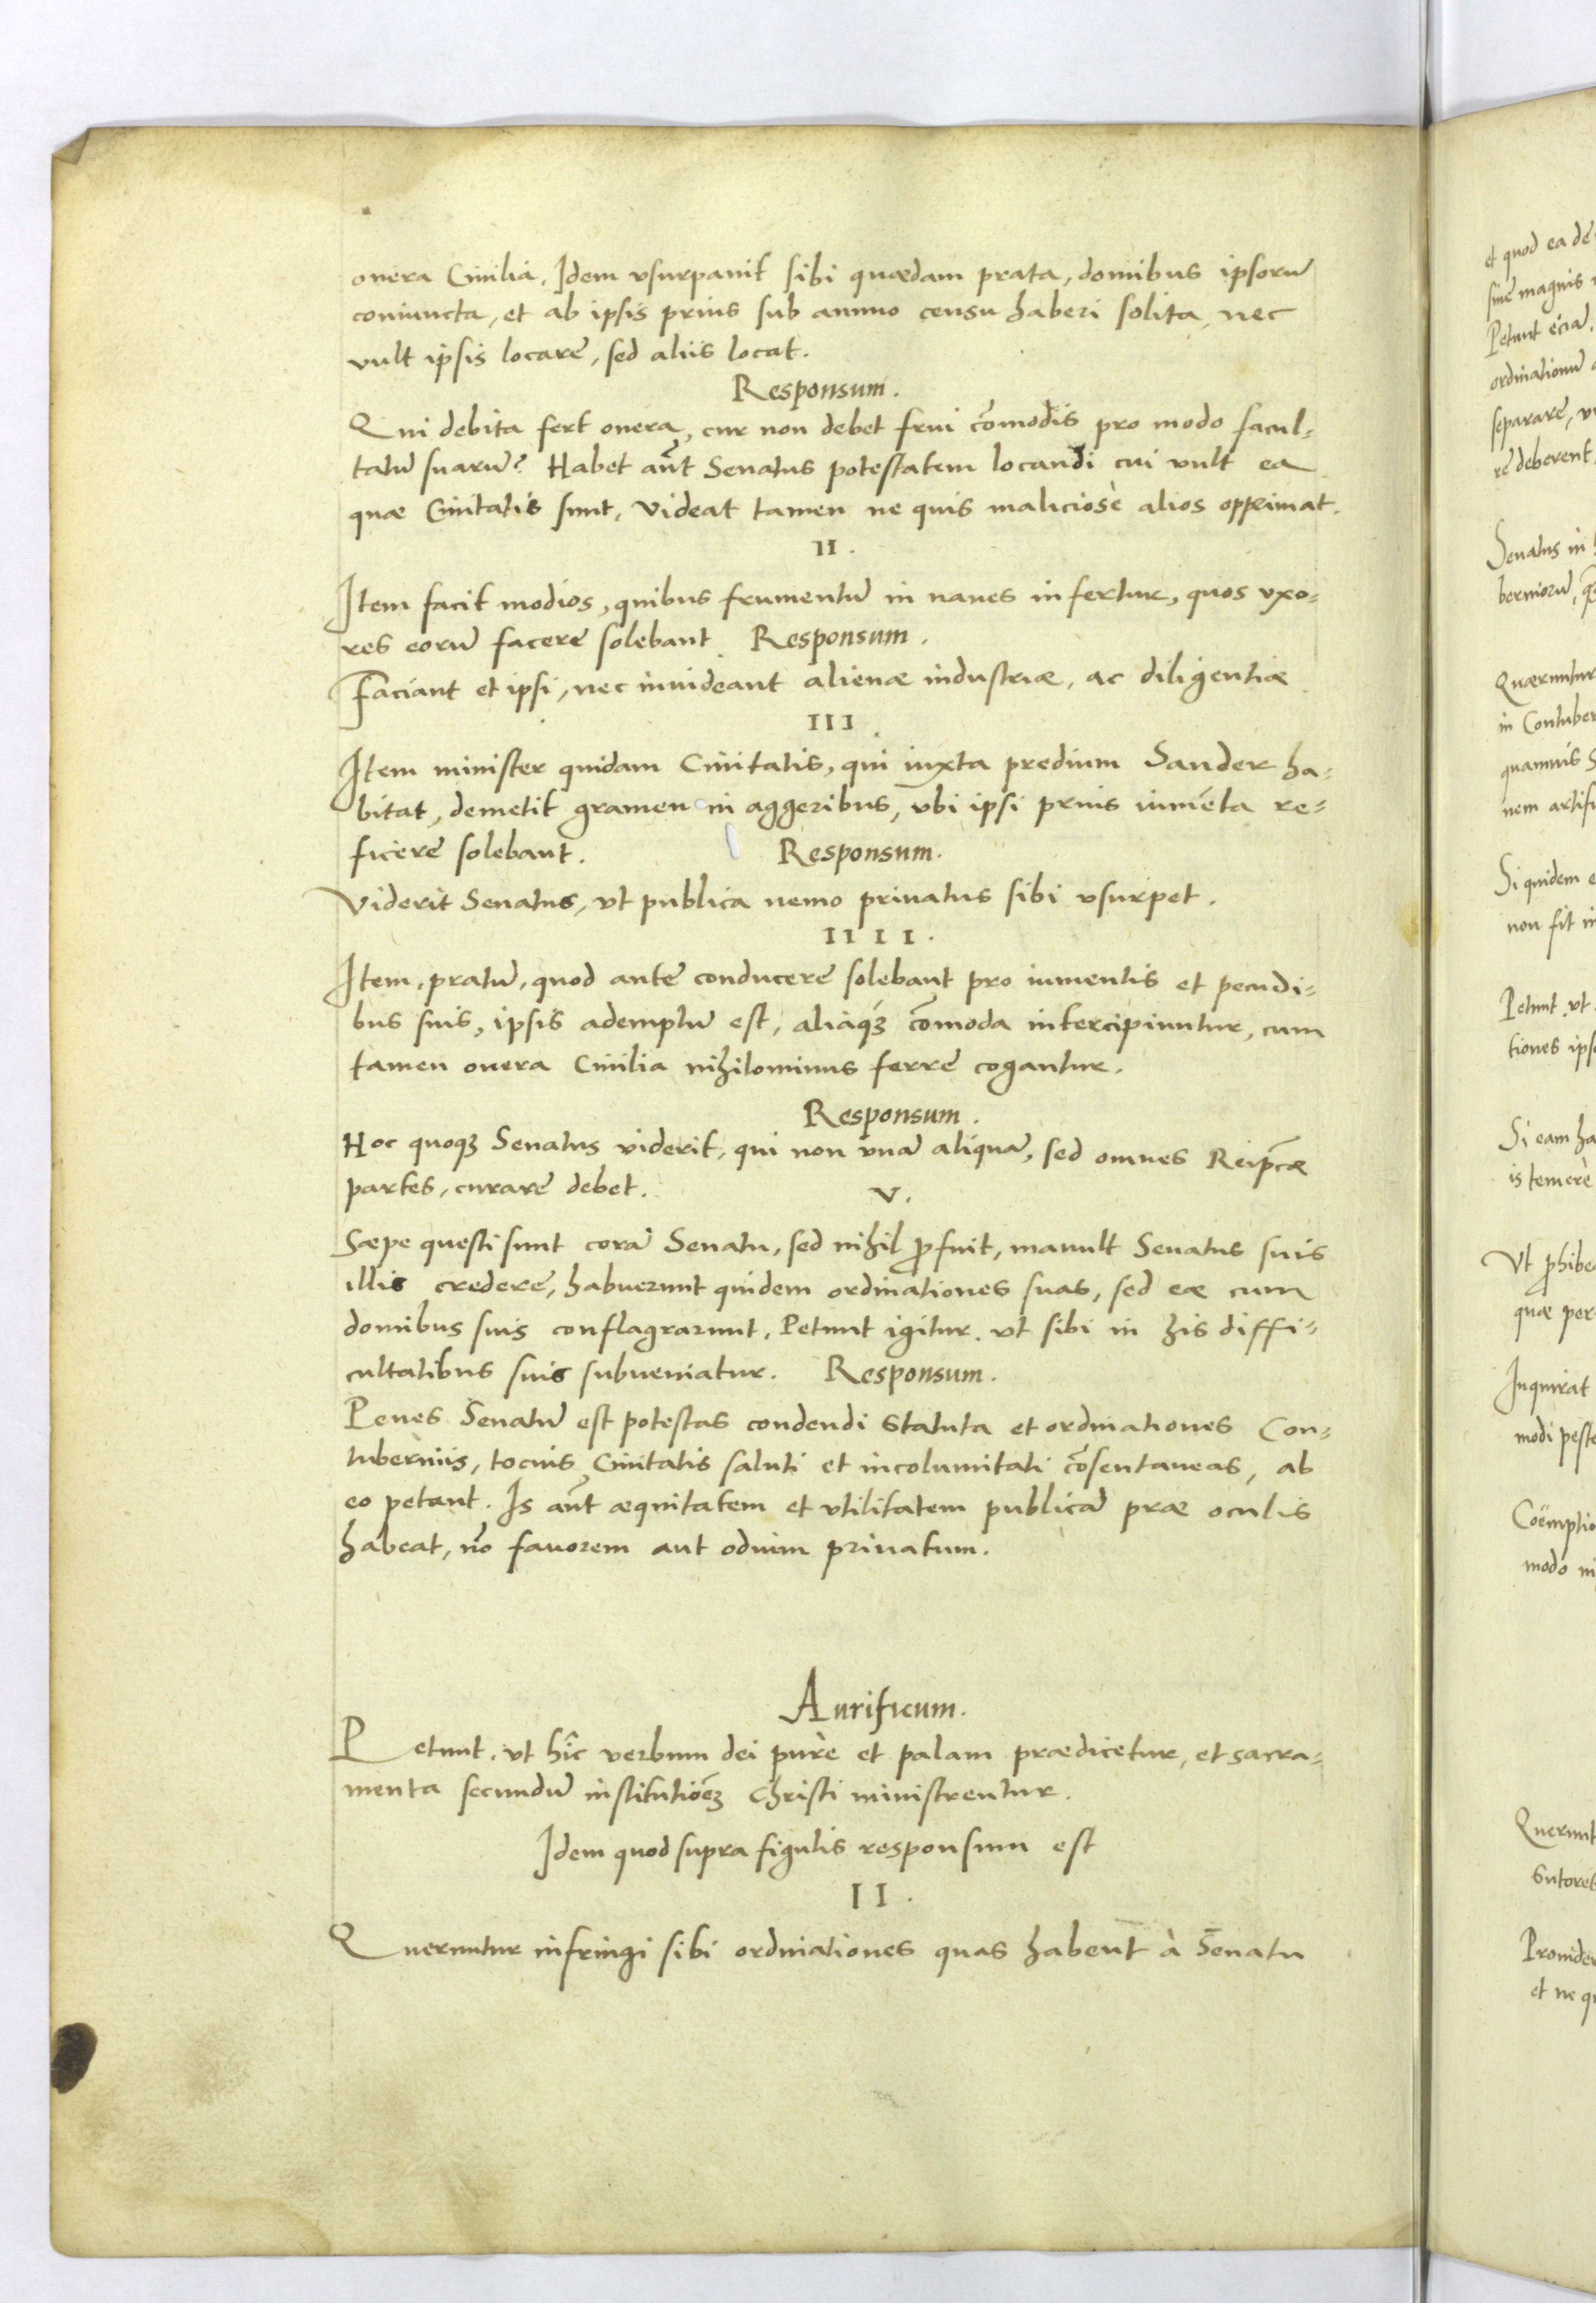 onera Ciuilia. Idem vsurpauit sibi quædam prata, domibus ipsorū
coniuncta, et ab ipsis prius sub annuo censu haberi solita, nec
vult ipsis locare, sed aliis locat.
Responsum.
Qui debita fert onera, cur non debet frui cōmodis pro modo facul-
tatū suarū? Habet aūt Senatus potestatem locandi cui vult ea
quæ Ciuitatis sunt, Videat tamen ne quis maliciosè alios opprimat.
II.
Item facit modios, quibus frumentū in naues infertur, quos vxo-
res eorū facere solebant. Responsum.
Faciant et ipsi, nec inuideant alienæ industriæ, ac diligentiæ
III.
Item minister quidam Ciuitatis, qui iuxta predium Sander ha-
bitat, demetit gramen in aggeribus, vbi ipsi prius iumēta re-
ficere solebant. Responsum.
Viderit Senatus, vt publica nemo priuatus sibi vsurpet.
IIII.
Item, pratū, quod ante conducere solebant pro iumentis et pecudi-
bus suis, ipsis ademptū est, aliaqꝫ cōmoda intercipiuntur, cum
tamen onera Ciuilia nihilominus ferre cogantur.
Responsum.
Hoc quoqꝫ Senatus viderit, qui non vnā aliquā, sed omnes Reipc̄æ
partes, curare debet. V.
Sæpe questi sunt corā Senatu, sed nihil ꝓfuit, mauult Senatus suis
illis credere, habuerunt quidem ordinationes suas, sed eæ cum
domibus suis conflagrarunt. Petunt igitur, vt sibi in his diffi-
cultatibus suis subueniatur. Responsum.
Penes Senatū est potestas condendi Statuta et ordinationes Con-
tuberniis, tocius Ciuitatis saluti et incolumitati cōsentaneas, ab
eo petant. Is aūt æquitatem et vtilitatem publicā præ oculis
habeat, nō fauorem aut odium priuatum.
Aurificum.
Petunt, vt hîc verbum dei purè et palam prædicetur, et sacra-
menta secundū institutiōeꝫ Christi ministrentur.
Idem quod supra figulis responsum est
II.
Queruntur infringi sibi ordinationes quas habent à Senatu
et quod ea
sine magnis
Petunt eciā
ordinationū
separare,
re deberent
Senatus in
berniorū,
Quæruntur
in Contuber
quamuis
nem artifi
Si quidem
non fit in
Petunt, vt
tiones ips
Si eam ha
is temerè
Vt ꝓhibe
quæ per
Inquirat
modi peste
Coëmptio
modo ni
Querunt
Sutores
Prouider
et ne qu